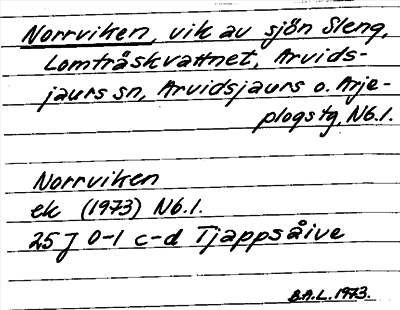 Norrviken, vik av sjön Sleng,
Lomträskvattnet, Arvids-
jaurs sn, Arvidsjaurs o. Arje-
plogs tg, Nb.l.
Norrviken
ek (1973) Nb.l.
25 J 0-1 c-d Tjappsåive
B.A.L. 1973.